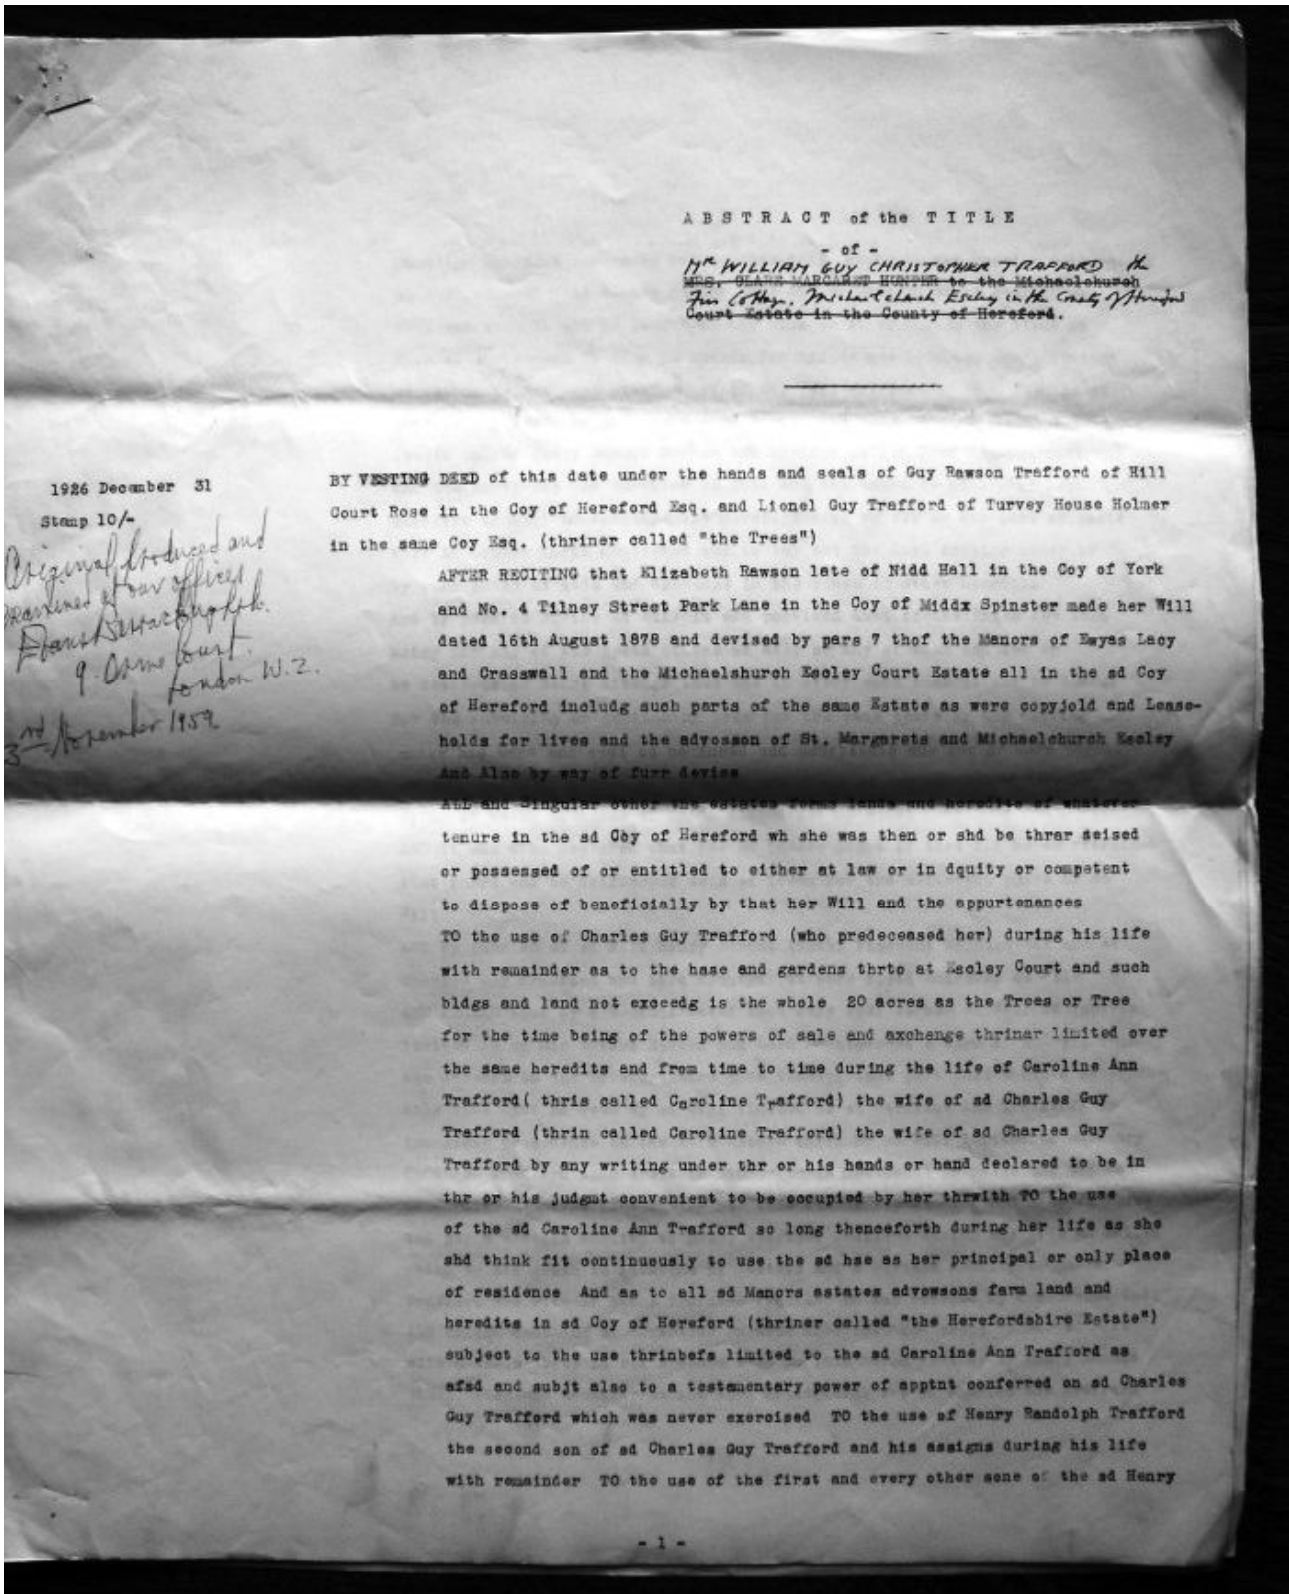 ABSTRACT of the TITLE
- of -
Mr WILLIAM GUY CHRISTOPHER TRAFFORD the
MRS. CLARE MARGARET HUNTER to the Michaelchurch
Firs Cottage, Michaelchurch Escley in the County of Hereford
Court Estate in the County of Hereford.
1926 December 31
Stamp 10/-
Original produced and
examined at our offices
9.
London W.2.
3rd November 1959
BY VESTING DEED of this date under the hands and seals of Guy Rawson Trafford of Hill
Court Rose in the Coy of Hereford Esq. and Lionel Guy Trafford of Turvey House Holmer
in the same Coy Esq. (thriner called "the Trees")
AFTER RECITING that Elizabeth Rawson late of Nidd Hall in the Coy of York
and No. 4 Tilney Street Park Lane in the Coy of Middx Spinster made her Will
dated 16th August 1878 and devised by pars 7 thof the Manors of Ewyas Lacy
and Crasswall and the Michaelshurch Escley Court Estate all in the sd Coy
of Hereford includg such parts of the same Estate as were copyjold and Lease-
holds for lives and the advosson of St. Margarets and Michaelchurch Escley
And Also by way of furr devise
ALL and Singular other the estates forms lands and heredits of whatever
tenure in the sd Coy of Hereford wh she was then or shd be thrar seised
or possessed of or entitled to either at law or in dquity or competent
to dispose of beneficially by that her Will and the appurtenances
TO the use of Charles Guy Trafford (who predeceased her) during his life
with remainder as to the hase and gardens thrto at Escley Court and such
bldgs and land not exceedg is the whole 20 acres as the Trees or Tree
for the time being of the powers of sale and axchange thrinar limited over
the same heredits and from time to time during the life of Caroline Ann
Trafford( thris called Caroline Trafford) the wife of sd Charles Guy
Trafford (thrin called Caroline Trafford) the wife of sd Charles Guy
Trafford by any writing under thr or his hands or hand declared to be in
thr or his judgmt convenient to be occupied by her thrwith TO the use
of the sd Caroline Ann Trafford so long thenceforth during her life as she
shd think fit continuously to use the sd hse as her principal or only place
of residence And as to all sd Manors astates advowsons farm land and
heredits in sd Coy of Hereford (thriner called "the Herefordshire Estate")
subject to the use thrinbefs limited to the sd Caroline Ann Trafford as
afsd and subjt also to a testamentary power of apptnt conferred on sd Charles
Guy Trafford which was never exercised TO the use of Henry Randolph Trafford
the second son of sd Charles Guy Trafford and his assigns during his life
with remainder TO the use of the first and every other sone of the sd Henry
- 1 -